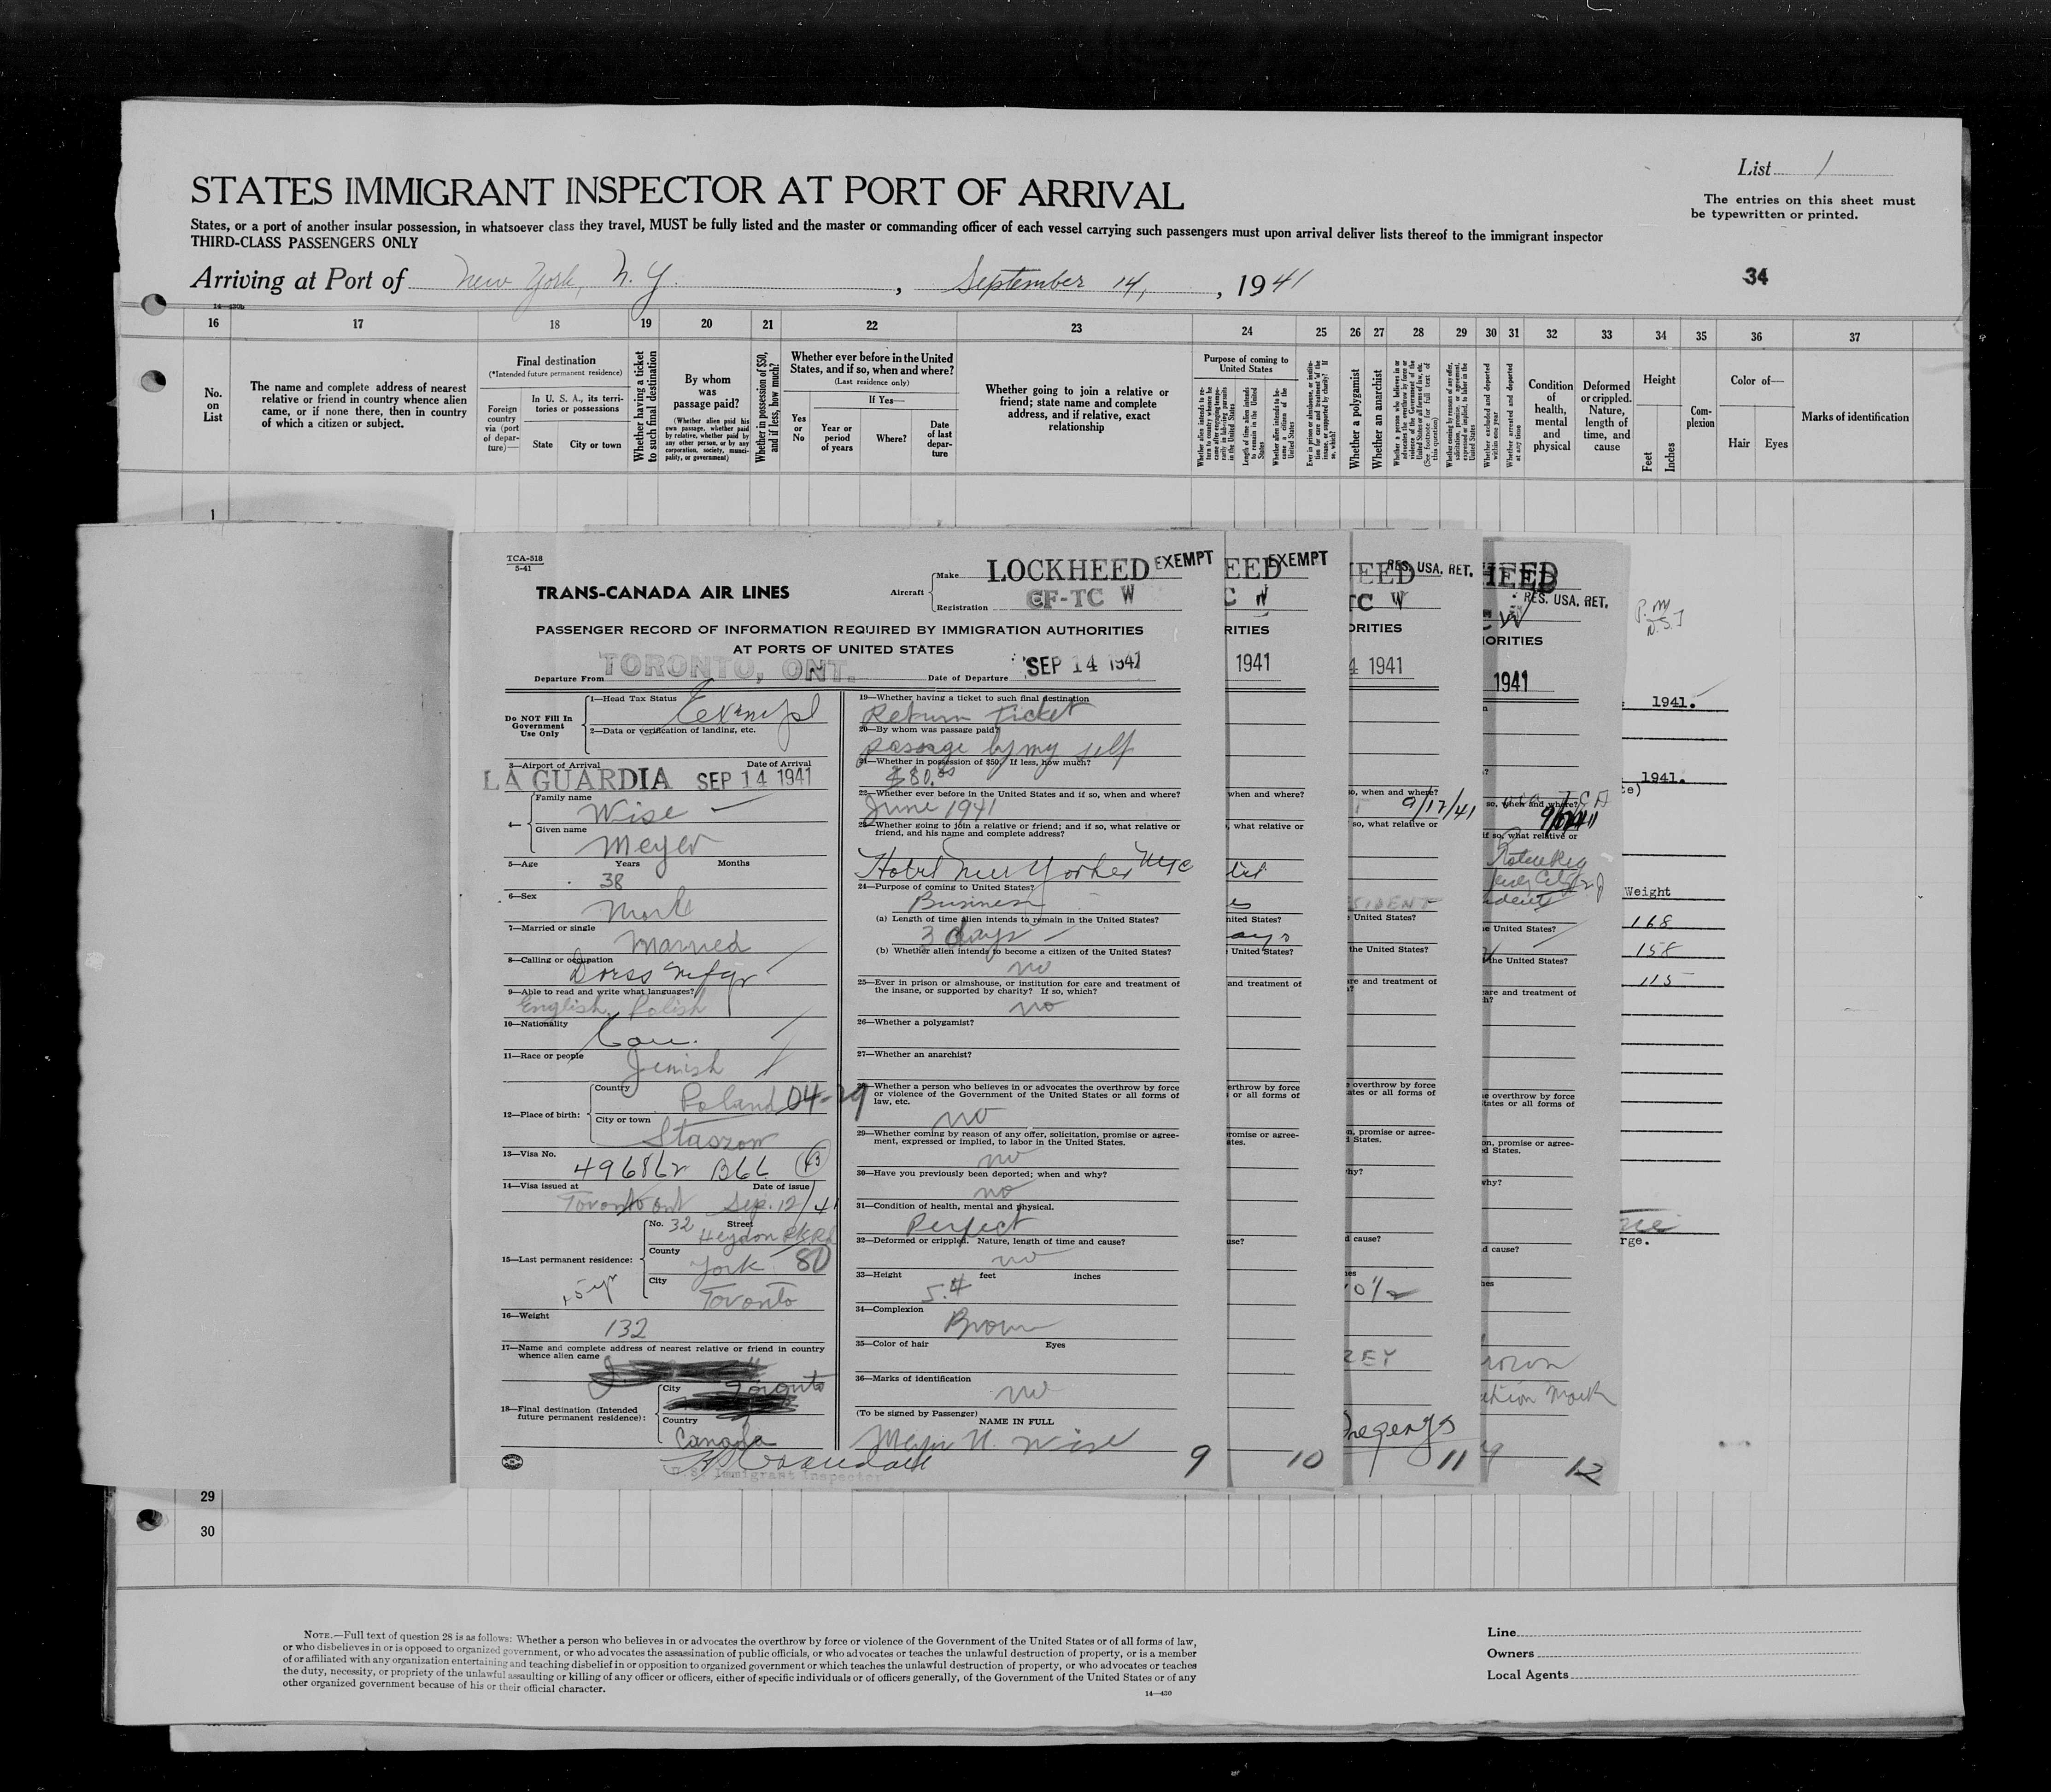 List 1
The entries on this sheet must
be typewritten or printed.
STATES IMMIGRANT INSPECTOR AT PORT OF ARRIVAL
States, or a port of another insular possession, in whatsoever class they travel, MUST be fully listed and the master or commanding officer of each vessel carrying such passengers must upon arrival deliver lists thereof to the immigrant inspector
THIRD-CLASS PASSENGERS ONLY
Arriving at Port of New York, N. Y. , September 14, , 1941
34
16 17 18 19 20 21 22 23 24 25 26 27 28 29 30 31 32 33 34 35 36 37
No.
on
List
The name and complete address of nearest
relative or friend in country whence alien
came, or if none there, then in country
of which a citizen or subject.
Final destination
(*Intended future permanent residence)
Foreign
country
via (port
of depar-
ture)—
In U. S. A., its terri-
tories or possessions
State City or town
Whether having a ticket
to such final destination
By whom
was
passage paid?
(Whether alien paid his
own passage, whether paid
by relative, whether paid by
any other person, or by any
corporation, society, munici-
pality, or government)
Whether in possession of $50,
and if less, how much?
Whether ever before in the United
States, and if so, when and where?
(Last residence only)
Yes
or
No
If Yes—
Year or
period
of years
Where?
Date
of last
depar-
ture
Whether going to join a relative or
friend; state name and complete
address, and if relative, exact
relationship
Purpose of coming to
United States
Whether a polygamist
Whether an anarchist
Whether excluded and deported
within one year
Whether arrested and deported
at any time
Condition
of
health,
mental
and
physical
Deformed
or crippled.
Nature,
length of
time, and
cause
Height
Feet
Inches
Com-
plexion
Color of—
Hair Eyes
Marks of identification
1
TCA-518
5-41
TRANS-CANADA AIR LINES
Aircraft
Make LOCKHEED EXEMPT
Registration CF-TC W
PASSENGER RECORD OF INFORMATION REQUIRED BY IMMIGRATION AUTHORITIES
AT PORTS OF UNITED STATES
Departure From TORONTO, ONT. Date of Departure SEP 14 1941
Do NOT Fill In
Government
Use Only
1—Head Tax Status Exempt
2—Data or verification of landing, etc.
3—Airport of Arrival Date of Arrival
LA GUARDIA SEP 14 1941
4—
Family name
Wise
Given name
Meyer
5—Age Years Months
38
6—Sex
Male
7—Married or single
Married
8—Calling or occupation
Dress mfgr
9—Able to read and write what languages?
English, Polish
10—Nationality
Can.
11—Race or people
Jewish
12—Place of birth:
Country
Poland 04-29
City or town
Staszow
13—Visa No.
14—Visa issued at Date of issue
Toronto Ont Sep. 12/41
15—Last permanent residence:
No. 32 Street
Heydon Pk Rd
County
York 80
City
Toronto
16—Weight
132
17—Name and complete address of nearest relative or friend in country
whence alien came
18—Final destination (Intended
future permanent residence):
City Toronto
Country
Canada
U. S. Immigrant Inspector
19—Whether having a ticket to such final destination
Return Ticket
20—By whom was passage paid?
passage by my self
21—Whether in possession of $50. If less, how much?
$80.00
22—Whether ever before in the United States and if so, when and where?
June 1941
23—Whether going to join a relative or friend; and if so, what relative or
friend, and his name and complete address?
Hotel New Yorker NYC
24—Purpose of coming to United States?
Business
(a) Length of time alien intends to remain in the United States?
3 days
(b) Whether alien intends to become a citizen of the United States?
no
25—Ever in prison or almshouse, or institution for care and treatment of
the insane, or supported by charity? If so, which?
no
26—Whether a polygamist?
27—Whether an anarchist?
28—Whether a person who believes in or advocates the overthrow by force
or violence of the Government of the United States or all forms of
law, etc.
no
29—Whether coming by reason of any offer, solicitation, promise or agree-
ment, expressed or implied, to labor in the United States.
no
30—Have you previously been deported; when and why?
no
31—Condition of health, mental and physical.
Perfect
32—Deformed or crippled. Nature, length of time and cause?
no
33—Height feet inches
5.4
34—Complexion
Brown
35—Color of hair Eyes
36—Marks of identification
no
(To be signed by Passenger)
NAME IN FULL
Meyer H. Wise
9
EXEMPT
1941
10
RES. USA. RET.
1941
9/17/41
11
RES. USA. RET.
1941
12
1941.
1941.
Weight
168
158
115
29
30
NOTE.—Full text of question 28 is as follows: Whether a person who believes in or advocates the overthrow by force or violence of the Government of the United States or of all forms of law,
or who disbelieves in or is opposed to organized government, or who advocates the assassination of public officials, or who advocates or teaches the unlawful destruction of property, or is a member
of or affiliated with any organization entertaining and teaching disbelief in or opposition to organized government or which teaches the unlawful destruction of property, or who advocates or teaches
the duty, necessity, or propriety of the unlawful assaulting or killing of any officer or officers, either of specific individuals or of officers generally, of the Government of the United States or of any
other organized government because of his or their official character.
14—430
Line
Owners
Local Agents